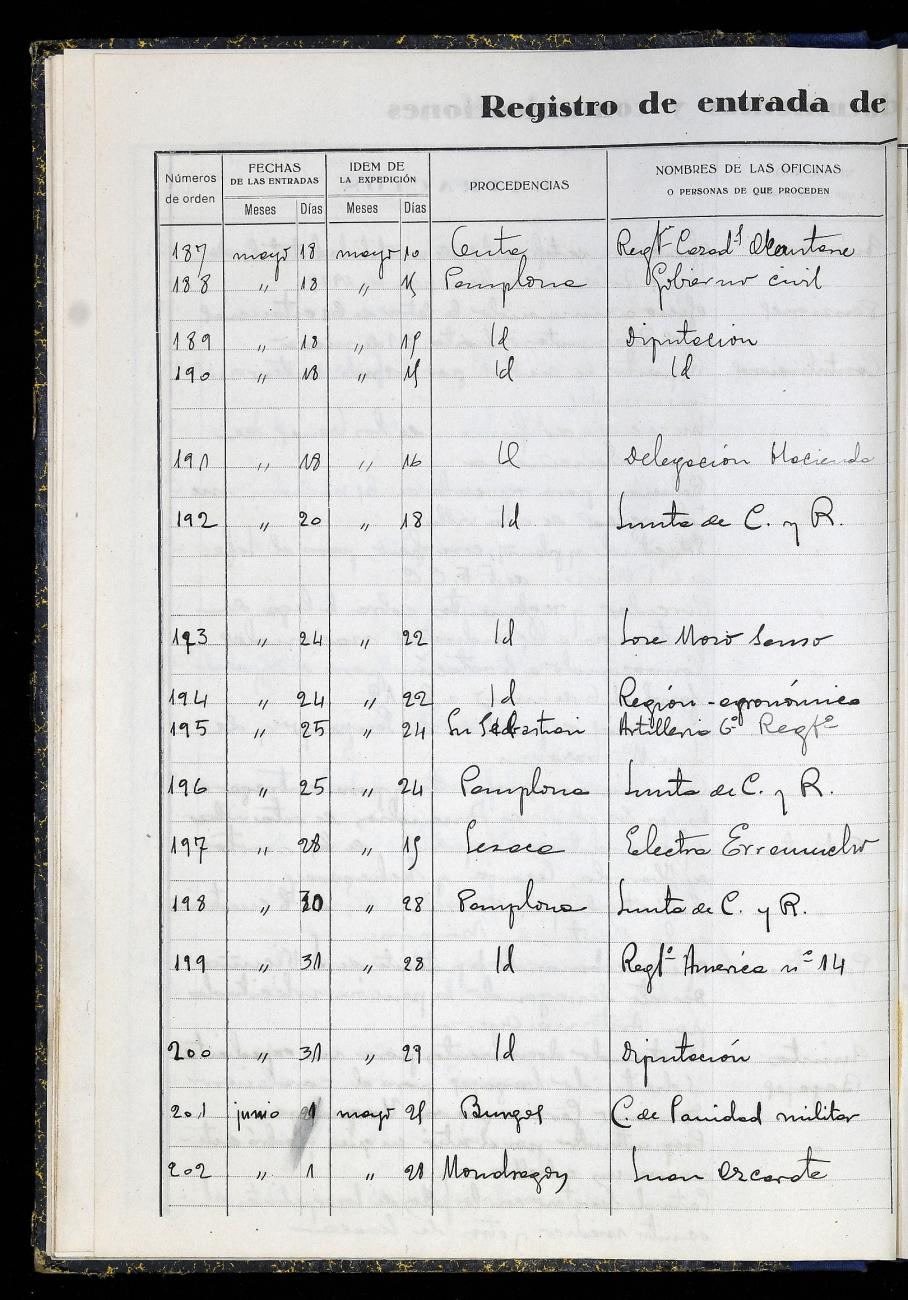 Registro de entrada de
Números de orden FECHAS DE LAS ENTRADAS IDEM DE LA EXPEDICIÓN PROCEDENCIAS NOMBRES DE LAS OFICINAS O PERSONAS DE QUE PROCEDEN
Meses Días Meses Días
187 mayo 18 mayo 10 Ceuta Regtº Cazads Alcantara
188 " 18 " 15 Pamplona Gobierno civil
189 " 18 " 15 Id Diputacion
190 " 18 " 15 Id Id
191 " 18 " 16 Id Delegación Hacienda
192 " 20 " 18 Id Junta de C. y R.
193 " 24 " 22 Id Jose Moro
194 " 24 " 22 Id Región agronómica
195 " 25 " 24 Sn Sebastian Artilleria 6º Regtº
196 " 25 " 24 Pamplona Junta de C. y R.
197 " 28 " 15 Lesaca Electra
198 " 30 " 28 Pamplona Junta de C. y R.
199 " 31 " 28 Id Regtº America nº 14
200 " 31 " 29 Id Diputación
201 junio 1 mayo 25 Burgos C. de Sanidad militar
202 " 1 " 21 Mondragon Juan Azcarate